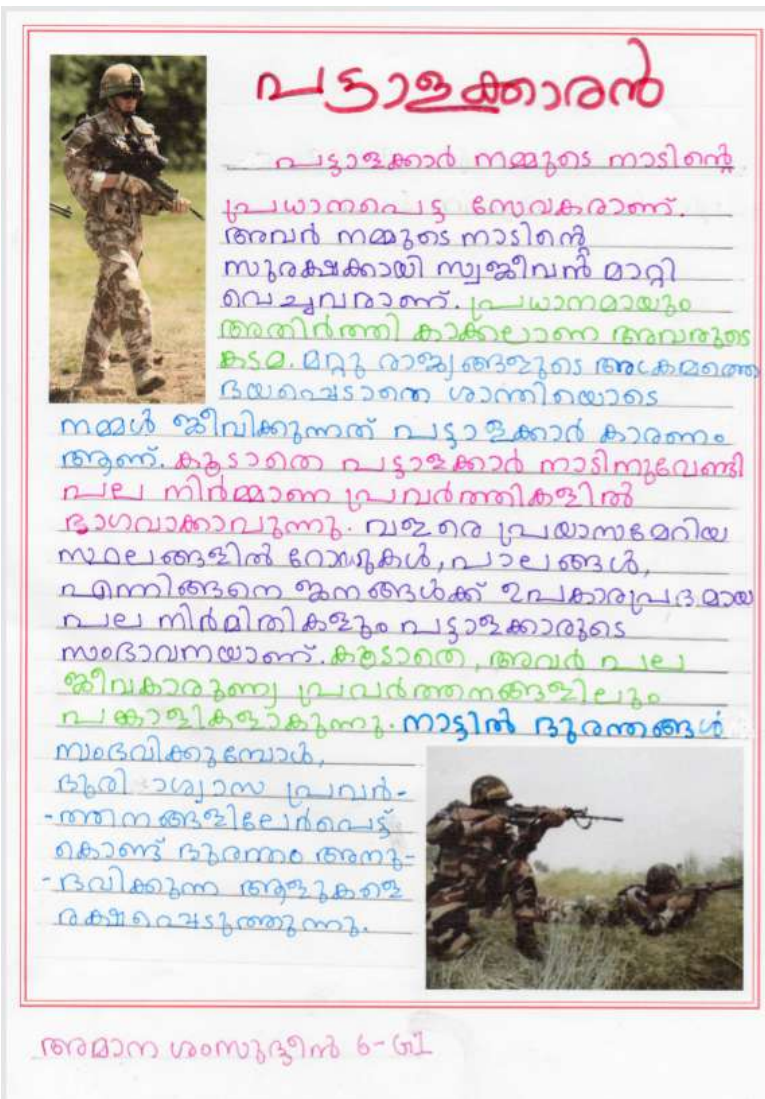 പട്ടാളക്കാരൻ
പട്ടാളക്കാർ നമ്മുടെ നാടിന്റെ
പ്രധാനപെട്ട സേവകരാണ്.
അവർ നമ്മുടെ നാടിന്റെ
സുരക്ഷക്കായി സ്വജീവൻ മാറ്റി
വെച്ചവരാണ്. പ്രധാനമായും
അതിർത്തി കാക്കലാണ അവരുടെ
കടമ. മറ്റു രാജ്യങ്ങളുടെ അക്രമത്തെ
ഭയപ്പെടാതെ ശാന്തിയൊടെ
നമ്മൾ ജീവിക്കുന്നത് പട്ടാളക്കാർ കാരണം
ആണ്. കൂടാതെ പട്ടാളക്കാർ നാടിനുവേണ്ടി
പല നിർമ്മാണ പ്രവർത്തികളിൽ
ഭാഗവാക്കാവുന്നു. വളരെ പ്രയാസമേറിയ
സ്ഥലങ്ങളിൽ റോഡുകൾ, പാലങ്ങൾ,
എന്നിങ്ങനെ ജനങ്ങൾക്ക് ഉപകാരപ്രദമായ
പല നിർമിതികളും പട്ടാളക്കാരുടെ
സംഭാവനയാണ്. കൂടാതെ, അവർ പല
ജീവകാരുണ്യ പ്രവർത്തനങ്ങളിലും
പങ്കാളികളാകുന്നു. നാട്ടിൽ ദുരന്തങ്ങൾ
സംഭവിക്കുമ്പോൾ,
ദുരി ാശ്വാസ പ്രവർ-
-ത്തനങ്ങളിലേർപെട്ട്
കൊണ്ട് ദുരന്തം അനു-
-ഭവിക്കുന്ന ആളുകളെ
രക്ഷപ്പെടുത്തുന്നു.
അമാന ശംസുദ്ദീൻ 6-G1